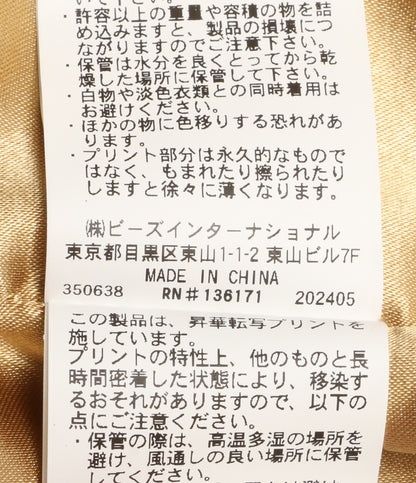 ・許容以上の重量や容積の物を詰
め込みますと、製品の損壊につ
ながりますのでご注意下さい。
・保管は水分を良くとってから乾
燥した場所に保管して下さい。
・白物や淡色衣類との同時着用は
お避けください。
・ほかの物に色移りする恐れがあ
ります。
・プリント部分は永久的なもので
はなく、もまれたり擦られたり
しますと徐々に薄くなります。
㈱ビーズインターナショナル
東京都目黒区東山1-1-2 東山ビル7F
MADE IN CHINA
350638 RN#136171 202405
この製品は、昇華転写プリントを
施しています。
プリントの特性上、他のものと長
時間密着した状態により、移染す
るおそれがありますので、以下の
点にご注意ください。
・保管の際は、高温多湿の場所を
避け、風通しの良い場所に保管
してください。